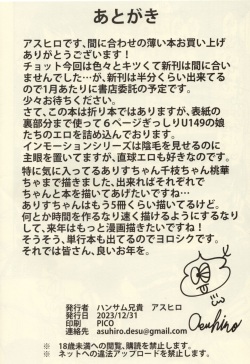 あとがき
アスヒロです、間に合わせの薄い本お買い上げ
ありがとうございます！
チョット今回は色々とキツくて新刊は間に合い
ませんでした…が、新刊は半分くらい出来てるの
で1月あたりに書店委託の予定です。
少々お待ちください。
さて、この本は折り本ではありますが、表紙の
裏部分まで使って6ページぎっしりU149の娘
たちのエロを詰め込んでおります。
インモーションシリーズは陰毛を見せるのに
主眼を置いてますが、直球エロも好きなのです。
特に気に入ってるありすちゃん千枝ちゃん桃華
ちゃまで描きました、出来ればそれぞれで
ちゃんと本を描いてあげたいですね…
ありすちゃんはもう5冊くらい描いてるけど。
何とか時間を作るなり速く描けるようにするなり
して、来年はもっと漫画描きたいですね！
そうそう、単行本も出てるのでヨロシクです。
それでは皆さん、良いお年を。
発行者　ハンサム兄貴　アスヒロ
発行日　2023/12/31
印刷　PICO
連絡先　asuhiro.desu@gmail.com
Asuhiro
※　18歳未満への閲覧、購読を禁止します。
※　ネットへの違法アップロードを禁止します。